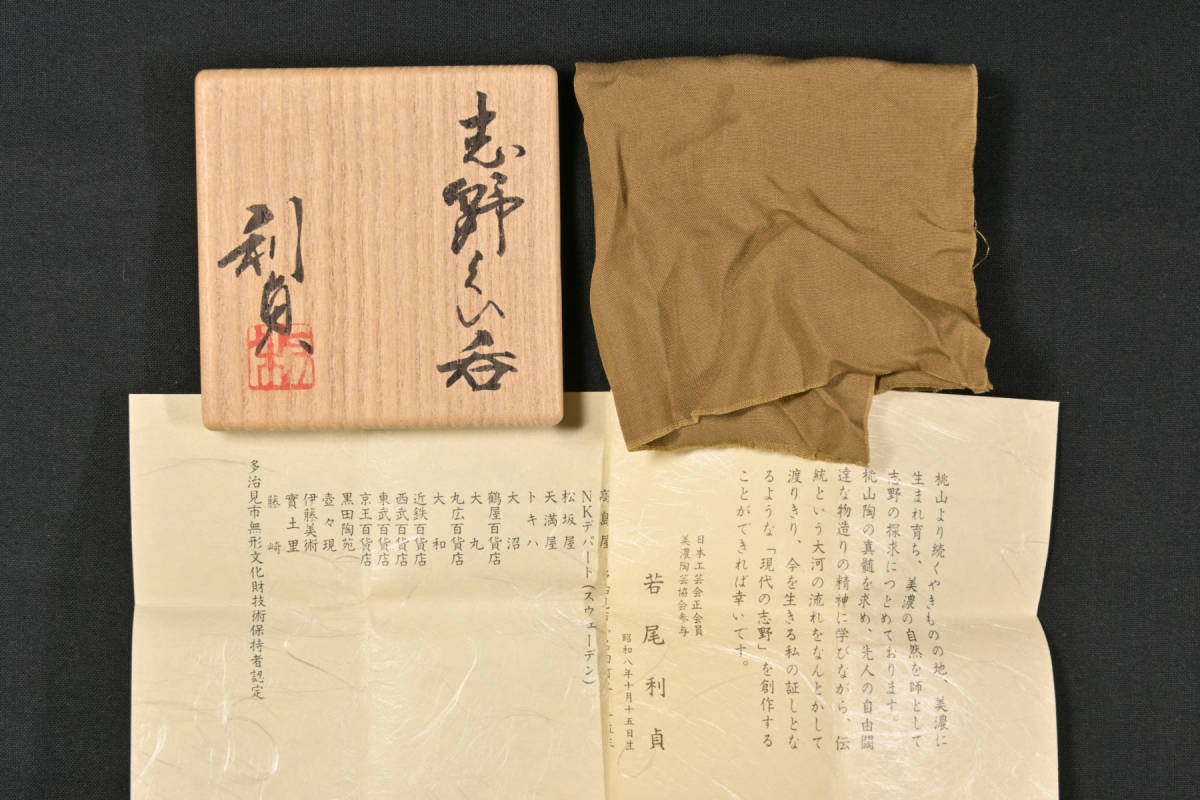 志野ぐい呑
利貞
桃山より続くやきものの地、美濃に
生まれ育ち、美濃の自然を師として
志野の探求につとめております。
桃山陶の真髄を求め、先人の自由闊
達な物造りの精神に学びながら、伝
統という大河の流れをなんとかして
渡りきり、今を生きる私の証しとな
るような「現代の志野」を創作する
ことができれば幸いです。
日本工芸会正会員
美濃陶芸協会参与
若尾利貞
昭和八年十月十五日生
髙島屋
NKデパート(スウェーデン)
松坂屋
天満屋
トキハ
大沼
鶴屋百貨店
大丸
丸広百貨店
大和
近鉄百貨店
西武百貨店
東武百貨店
京王百貨店
黒田陶苑
壺々現
伊藤美術
實土里
藤崎
多治見市無形文化財技術保持者認定